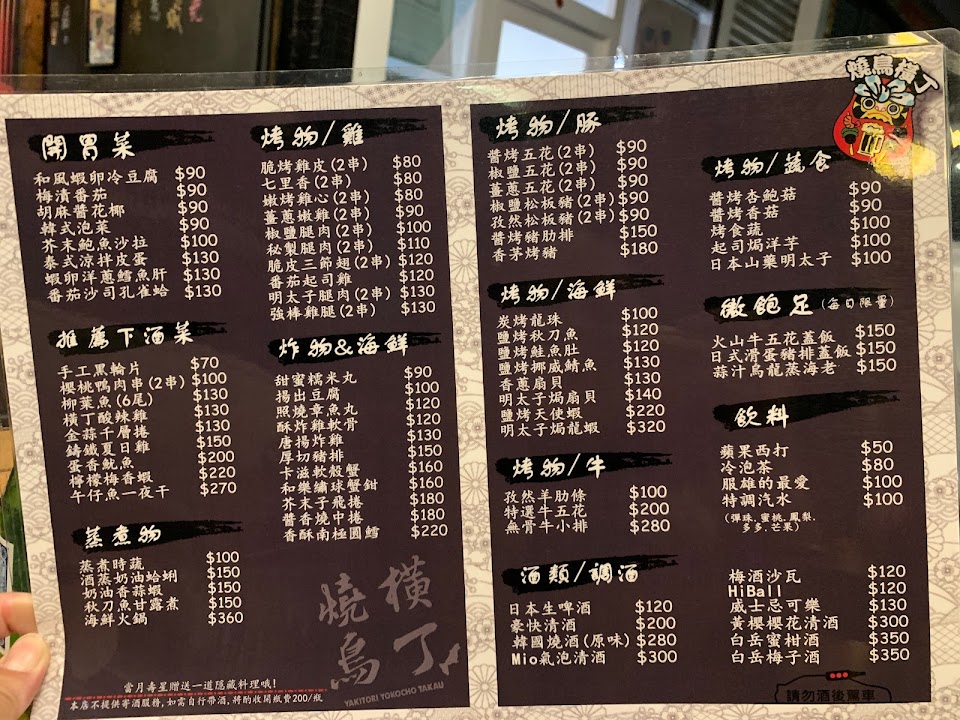 開胃菜
和風蝦卵冷豆腐 $90
梅漬番茄 $90
胡麻醬花椰 $90
韓式泡菜 $90
芥末鮑魚沙拉 $100
泰式涼拌皮蛋 $130
蝦卵洋蔥鱈魚肝 $130
番茄沙司孔雀蛤 $130
推薦下酒菜
手工黑輪片 $70
櫻桃鴨肉串(2串) $100
柳葉魚(6尾) $130
橫丁酸辣雞 $130
金蒜千層捲 $130
鑄鐵夏日雞 $150
蛋香魷魚 $200
檸檬梅香蝦 $220
午仔魚一夜干 $270
蒸煮物
蒸煮時蔬 $100
酒蒸奶油蛤蜊 $150
奶油香蒜蝦 $150
秋刀魚甘露煮 $150
海鮮火鍋 $360
烤物/雞
脆烤雞皮(2串) $80
七里香(2串) $80
嫩烤雞心(2串) $80
薑蔥嫩雞(2串) $90
椒鹽腿肉(2串) $100
秘製腿肉(2串) $110
脆皮三節翅(2串) $120
番茄起司雞 $120
明太子腿肉(2串) $130
強棒雞腿(2串) $130
炸物&海鮮
甜蜜糯米丸 $90
揚出豆腐 $100
照燒章魚丸 $120
酥炸雞軟骨 $120
唐揚炸雞 $130
厚切豬排 $150
卡滋軟殼蟹 $160
和樂繡球蟹鉗 $160
芥末子飛捲 $180
醬香燒中捲 $180
香酥南極圓鱈 $220
燒鳥
橫丁
YAKITORI YOKOCHO TAKAU
當月壽星贈送一道隱藏料理哦!
本店不提供寄酒服務,如需自行帶酒,將酌收開瓶費200/瓶
烤物/豚
醬烤五花(2串) $90
椒鹽五花(2串) $90
薑蔥五花(2串) $90
椒鹽松板豬(2串) $90
孜然松板豬(2串) $90
醬烤豬肋排 $150
香茅烤豬 $180
烤物/海鮮
炭烤龍珠 $100
鹽烤秋刀魚 $120
鹽烤鮭魚肚 $120
鹽烤挪威鯖魚 $130
香蔥扇貝 $130
明太子焗扇貝 $140
鹽烤天使蝦 $220
明太子焗龍蝦 $320
烤物/牛
孜然羊肋條 $100
特選牛五花 $200
無骨牛小排 $280
酒類/調酒
日本生啤酒 $120
豪快清酒 $200
韓國燒酒(原味) $280
Mio氣泡清酒 $300
燒鳥橫丁
烤物/蔬食
醬烤杏鮑菇 $90
醬烤香菇 $90
烤食蔬 $100
起司焗洋芋 $100
日本山藥明太子 $100
微飽足(每日限量)
火山牛五花蓋飯 $150
日式滑蛋豬排蓋飯 $150
蒜汁烏龍蒸海老 $150
飲料
蘋果西打 $50
冷泡茶 $80
服雄的最愛 $100
特調汽水 $100
(彈珠.蜜桃.鳳梨.
多多.芒果)
梅酒沙瓦 $120
HiBall $120
威士忌可樂 $130
黃櫻櫻花清酒 $300
白岳蜜柑酒 $350
白岳梅子酒 $350
請勿酒後駕車